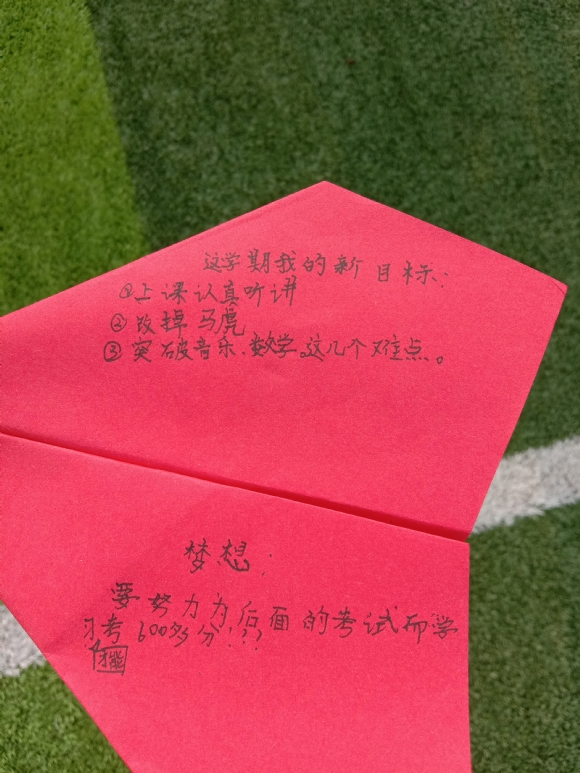 这学期我的新目标:
①上课认真听讲
②改掉马虎
③突破音乐、数学这几个难点。
梦想:
要努力为后面的考试而学
习考600多分!??
才能